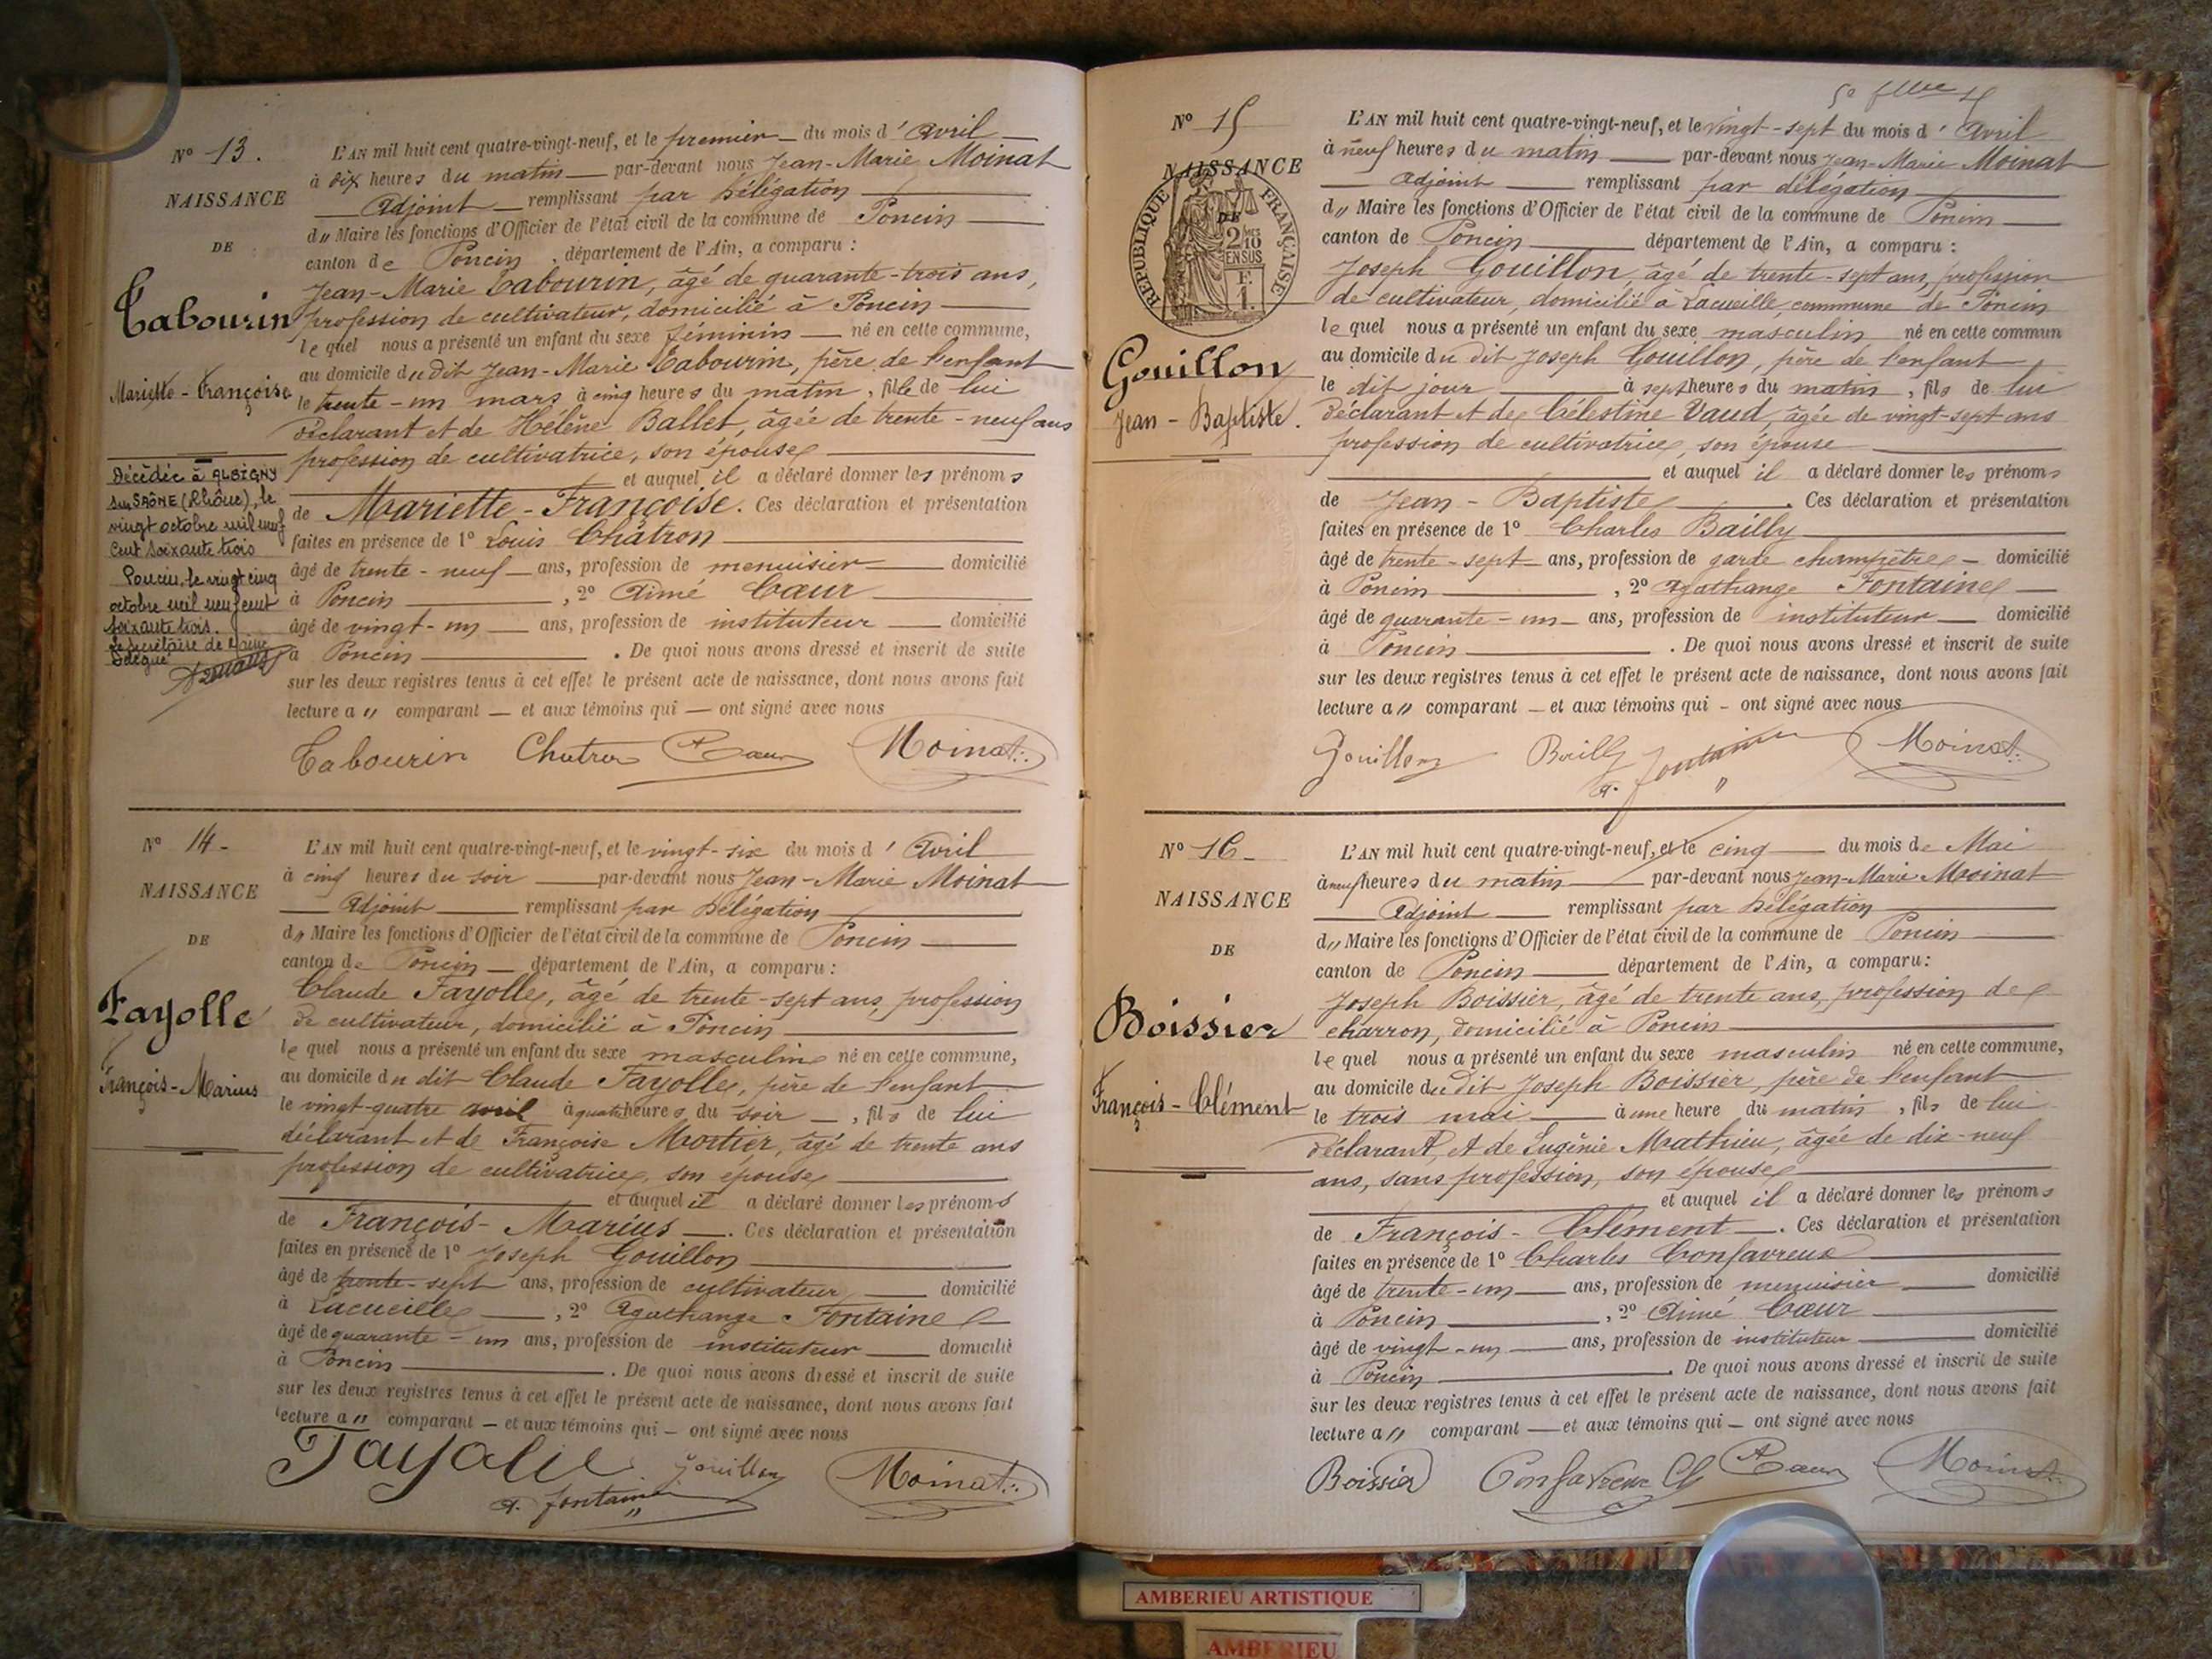 Nº 13.
NAISSANCE
DE
Tabourin
Mariette - Françoise
Décédée à ALBIGNY
sur SAÔNE (Rhône), le
vingt octobre mil neuf
cent soixante trois
Poncin, le vingt cinq
octobre mil neuf cent
soixante trois.
Le Secrétaire de Mairie
Délégué
L'AN mil huit cent quatre-vingt-neuf, et le premier du mois d' Avril
à dix heures du matin par-devant nous Jean-Marie Moinat
Adjoint remplissant par délégation
d„ Maire les fonctions d'Officier de l'état civil de la commune de Poncin
canton de Poncin, département de l'Ain, a comparu :
Jean-Marie Tabourin, âgé de quarante-trois ans,
profession de cultivateur, domicilié à Poncin
lequel nous a présenté un enfant du sexe féminin né en cette commune,
au domicile du dit Jean-Marie Tabourin, père de l'enfant
le trente-un mars à cinq heures du matin, fille de lui
déclarant et de Hélène Ballet, âgée de trente-neuf ans
profession de cultivatrice, son épouse
et auquel il a déclaré donner les prénoms
de Mariette-Françoise. Ces déclaration et présentation
faites en présence de 1º Louis Châtron
âgé de trente-neuf ans, profession de menuisier domicilié
à Poncin, 2º Aimé Cœur
âgé de vingt-un ans, profession de instituteur domicilié
à Poncin. De quoi nous avons dressé et inscrit de suite
sur les deux registres tenus à cet effet le présent acte de naissance, dont nous avons fait
lecture a„ comparant — et aux témoins qui — ont signé avec nous
Tabourin Chatron A Cœur Moinat
Nº 14
NAISSANCE
DE
Fayolle
François-Marius
L'AN mil huit cent quatre-vingt-neuf, et le vingt-six du mois d' Avril
à cinq heures du soir par-devant nous Jean-Marie Moinat
Adjoint remplissant par délégation
d„ Maire les fonctions d'Officier de l'état civil de la commune de Poncin
canton de Poncin département de l'Ain, a comparu :
Claude Fayolle, âgé de trente-sept ans, profession
de cultivateur, domicilié à Poncin
lequel nous a présenté un enfant du sexe masculin né en cette commune,
au domicile du dit Claude Fayolle, père de l'enfant
le vingt-quatre avril à quatre heures du soir, fils de lui
déclarant et de Françoise Mortier, âgé de trente ans
profession de cultivatrice, son épouse
et auquel il a déclaré donner les prénoms
de François-Marius. Ces déclaration et présentation
faites en présence de 1º Joseph Gouillon
âgé de trente-sept ans, profession de cultivateur domicilié
à Lacueille, 2º Agathange Fontaine
âgé de quarante-un ans, profession de instituteur domicilié
à Poncin. De quoi nous avons dressé et inscrit de suite
sur les deux registres tenus à cet effet le présent acte de naissance, dont nous avons fait
lecture a„ comparant — et aux témoins qui — ont signé avec nous
Fayolle Gouillon Moinat
A. Fontaine
Nº 15
NAISSANCE
DE
RÉPUBLIQUE FRANÇAISE
2/10 EN SUS
F.
1.
Gouillon
Jean-Baptiste.
L'AN mil huit cent quatre-vingt-neuf, et le vingt-sept du mois d' Avril
à neuf heures du matin par-devant nous Jean-Marie Moinat
Adjoint remplissant par délégation
d„ Maire les fonctions d'Officier de l'état civil de la commune de Poncin
canton de Poncin département de l'Ain, a comparu :
Joseph Gouillon, âgé de trente-sept ans, profession
de cultivateur, domicilié à Lacueille, commune de Poncin
lequel nous a présenté un enfant du sexe masculin né en cette commun
au domicile du dit Joseph Gouillon, père de l'enfant
le dit jour à sept heures du matin, fils de lui
déclarant et de Célestine Vaud, âgée de vingt-sept ans
profession de cultivatrice, son épouse
et auquel il a déclaré donner les prénoms
de Jean-Baptiste. Ces déclaration et présentation
faites en présence de 1º Charles Bailly
âgé de trente-sept ans, profession de garde champêtre domicilié
à Poncin, 2º Agathange Fontaine
âgé de quarante-un ans, profession de instituteur domicilié
à Poncin. De quoi nous avons dressé et inscrit de suite
sur les deux registres tenus à cet effet le présent acte de naissance, dont nous avons fait
lecture a„ comparant — et aux témoins qui — ont signé avec nous
Gouillon Bailly A. Fontaine Moinat
Nº 16
NAISSANCE
DE
Boissier
François-Clément
L'AN mil huit cent quatre-vingt-neuf, et le cinq du mois de Mai
à neuf heures du matin par-devant nous Jean-Marie Moinat
Adjoint remplissant par délégation
d„ Maire les fonctions d'Officier de l'état civil de la commune de Poncin
canton de Poncin département de l'Ain, a comparu :
Joseph Boissier, âgé de trente ans, profession de
charron, domicilié à Poncin
lequel nous a présenté un enfant du sexe masculin né en cette commune,
au domicile du dit Joseph Boissier, père de l'enfant
le trois mai à une heure du matin, fils de lui
déclarant, et de Eugénie Mathieu, âgée de dix-neuf
ans, sans profession, son épouse
et auquel il a déclaré donner les prénoms
de François-Clément. Ces déclaration et présentation
faites en présence de 1º Charles Confavreux
âgé de trente-un ans, profession de menuisier domicilié
à Poncin, 2º Aimé Cœur
âgé de vingt-un ans, profession de instituteur domicilié
à Poncin. De quoi nous avons dressé et inscrit de suite
sur les deux registres tenus à cet effet le présent acte de naissance, dont nous avons fait
lecture a„ comparant — et aux témoins qui — ont signé avec nous
Boissier Confavreux Ch A Cœur Moinat
AMBERIEU ARTISTIQUE
AMBERIEU